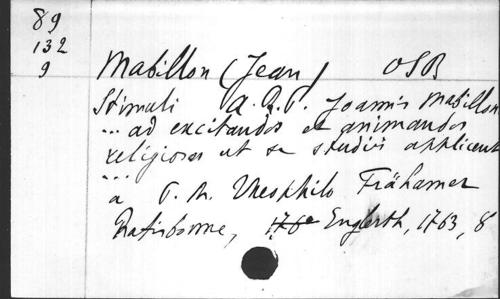 89
132
9
Mabillon (Jean) OSB
Stimuli A.R.P. Joannis Mabillon
... ad excitandos et animandos
religiosos ut se studiis applicent
...
a P. M. Theophilo Frähamer
Ratisbonne, 176 Englerth, 1763, 8